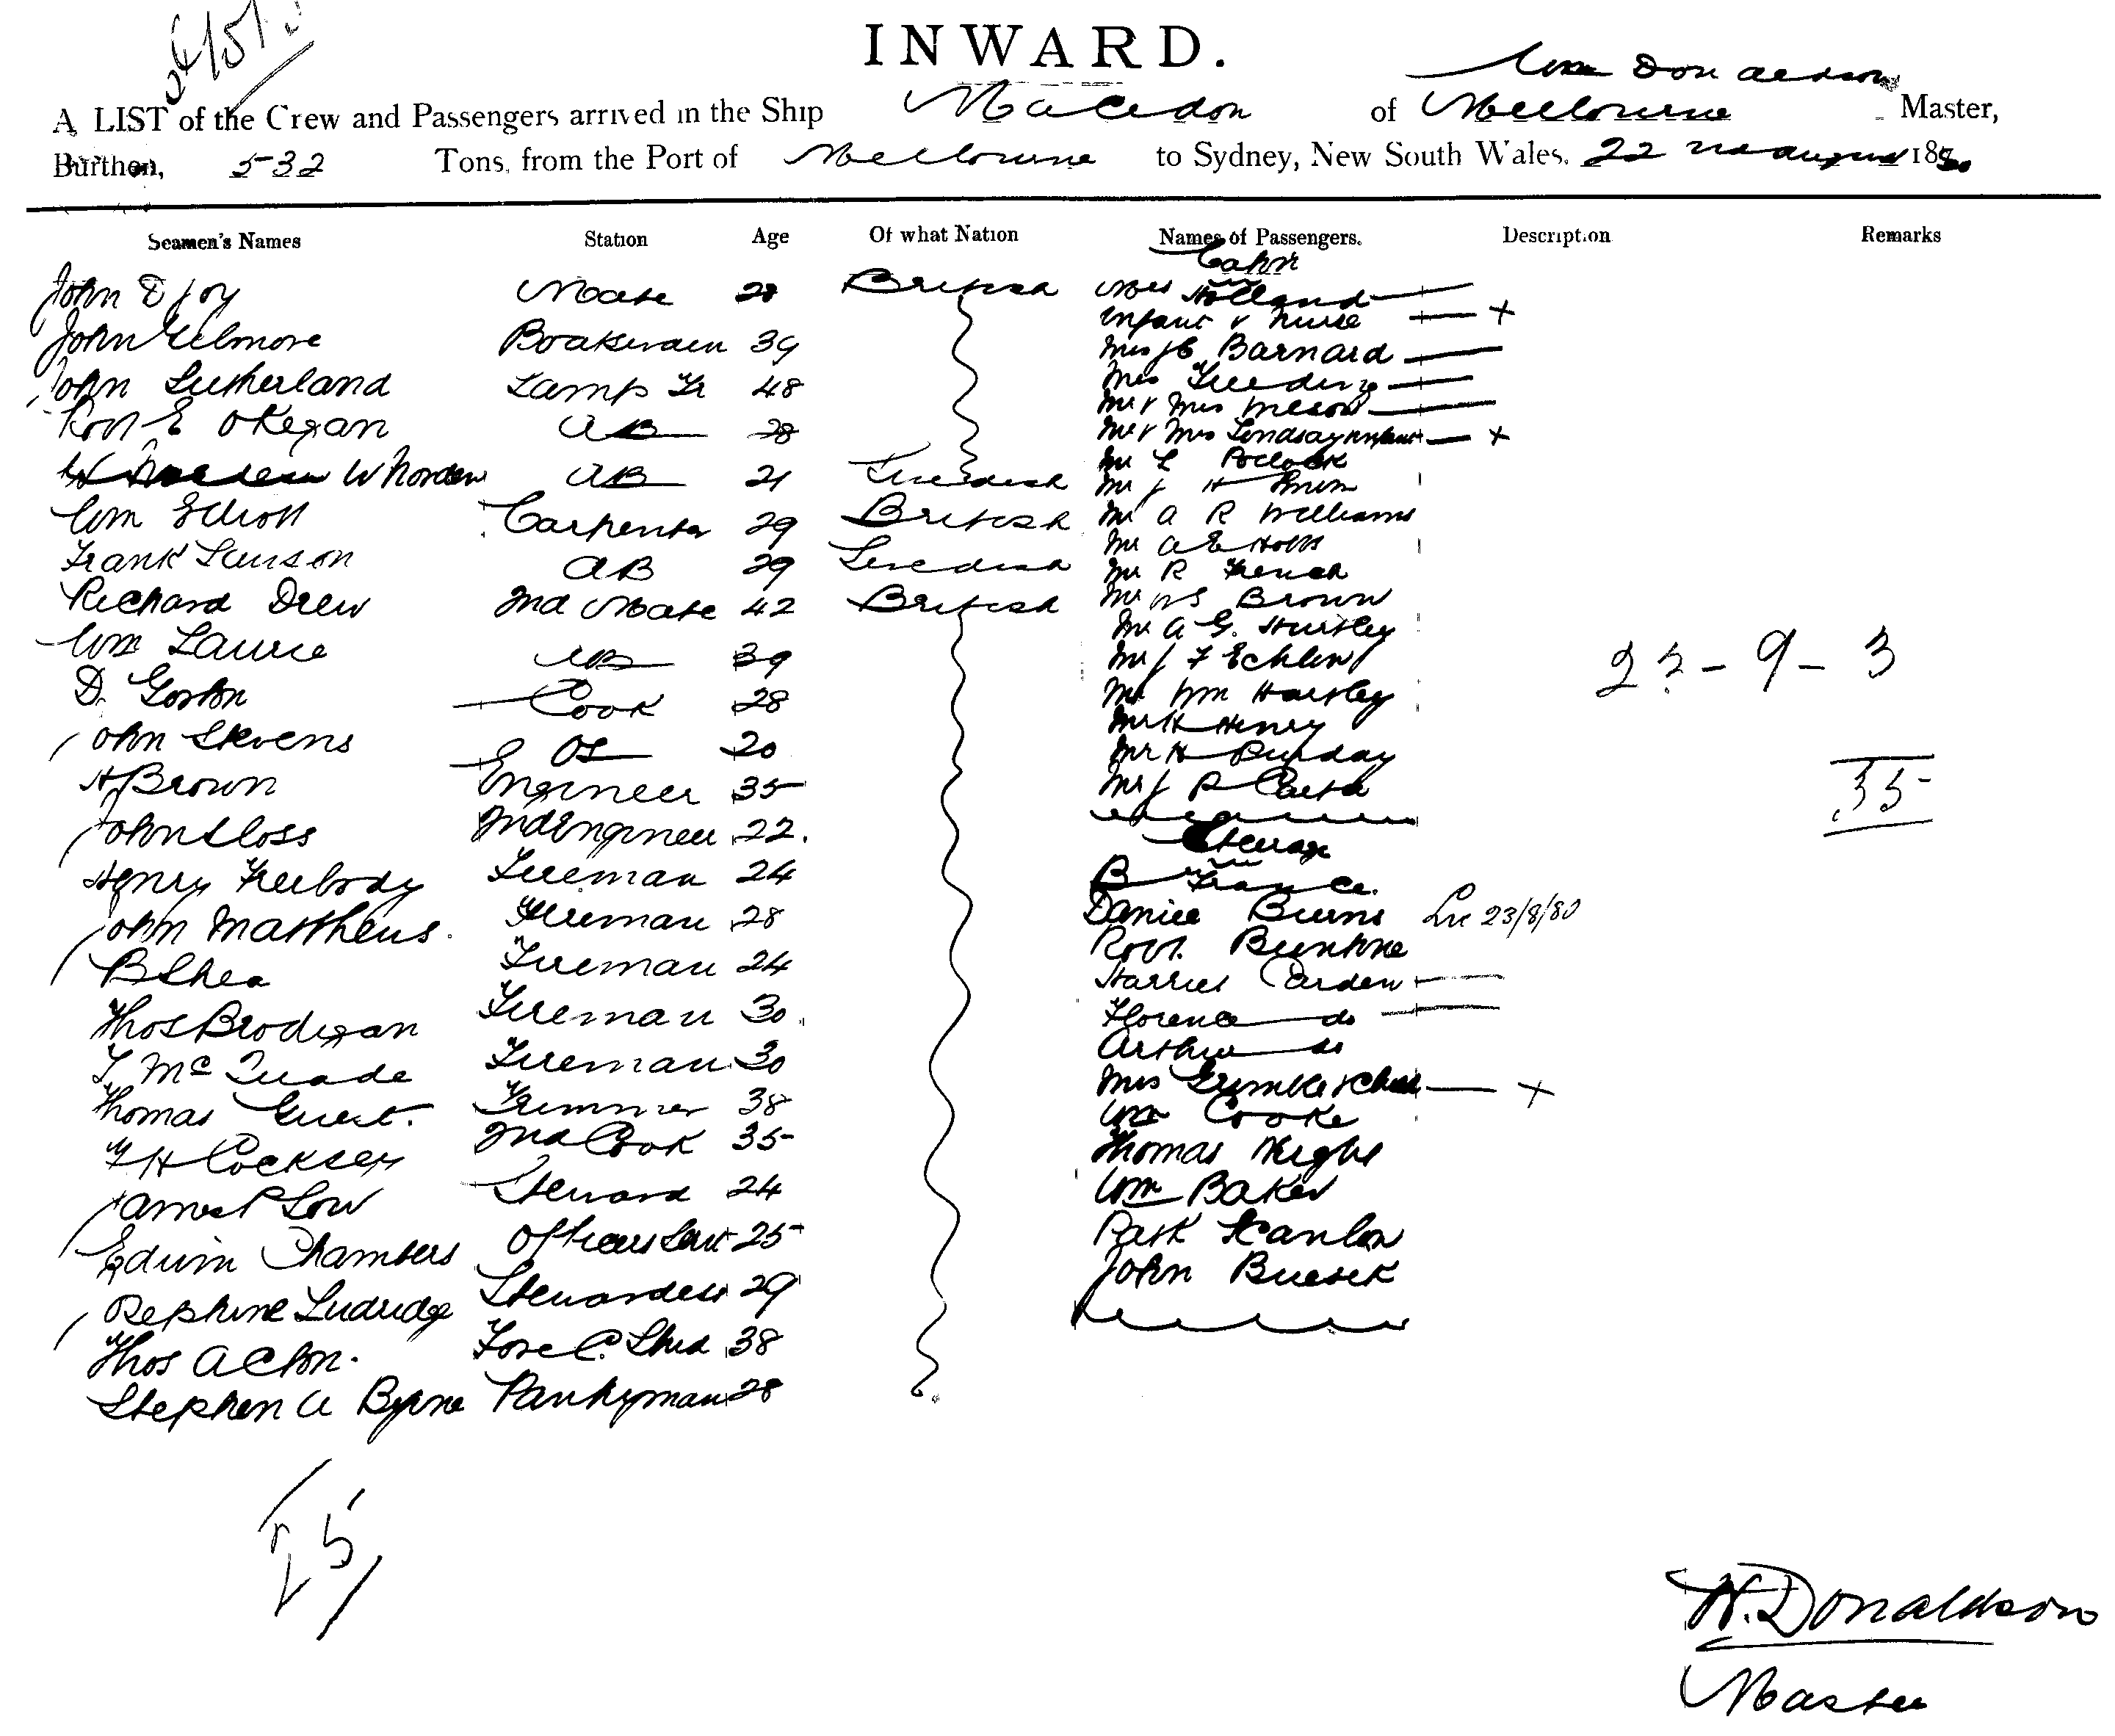 INWARD.
Wm Donaldson
A LIST of the Crew and Passengers arrived in the Ship Macedon of Melbourne Master,
Burthen, 532 Tons, from the Port of Melbourne to Sydney, New South Wales. 22nd August 1880
Seamen's Names Station Age Of what Nation Names of Passengers. Description Remarks
Cabin
John D Joy Mate 28 British Mrs Holland
Infant & nurse +
John Gilmore Boatswain 39 Mrs Barnard
John Sutherland Lamp Tr 48 Mrs
Robt E OKegan AB 28 Mr & Mrs
Mr & Mrs Lindsay infant +
W Thorden AB 21 Swedish Mr L Pollock
Mr J H
Wm Elliott Carpenter 29 British Mr A R Williams
Mr A E Holt
Frank AB 29 Swedish Mr R French
Richard Drew 2nd Mate 42 British Mr W S Brown
Mr A G. Huntley
Wm Laurie AB 39 Mr J F Echlin
D. Gorton Cook 28 Mr Wm Hartley
Mr H Henry
John Stevens OS 20 Mr H Punday
H Brown Engineer 35 Mr J R Carter
John Sloss 2nd Engineer 22. Steerage
Henry Freebody Fireman 24 B France.
John Matthews. Fireman 28 Daniel Burns 23/8/80
Robt. Buntine
B Shea Fireman 24 Harriet Carden
Thos Brodigan Fireman 30 Florence do
Arthur do
T McQuade Fireman 30 Mrs Grumble & Child +
Thomas Guest. Trimmer 38 Wm Cooke
F H Cocksey 2nd Cook 35 Thomas Wright
James P Low Steward 24 Wm Baker
Edwin Chambers Officers Servt 25 Patk Scanlon
John Buesek
Sephine Ludridge Stewardess 29
Thos Acton. Fore C. Stwd 38
Stephen A Byrne Pantryman 28
22 - 9 - 3
35
25
W. Donaldson
Master